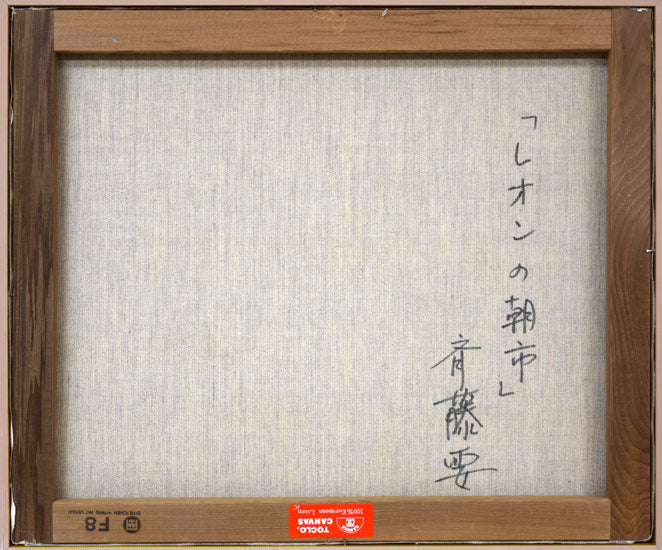 「レオンの朝市」
斉藤要
TOCLO.
CANVAS
100% European Linen
F8